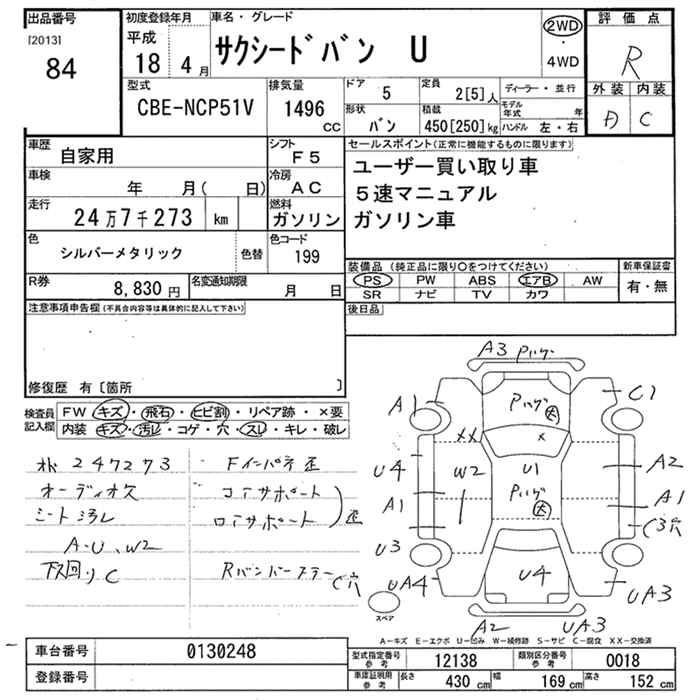 出品番号
[2013]
84
初度登録年月
平成
18 4 月
車名・グレード
サクシードバン U
2WD
・
4WD
評価点
R
外装 内装
C
型式
CBE-NCP51V
排気量
1496
CC
ドア
5
定員
2[5]人
形状
バン
積載
450[250]kg
ディーラー・並行
モデル年式 年
ハンドル 左・右
車歴
自家用
シフト
F5
車検
年 月( 日)
冷房
AC
走行
24万7千273 km
燃料
ガソリン
色
シルバーメタリック
色替
色コード
199
R券
8,830 円
名変通知期限
月 日
セールスポイント(正常に機能するものに限ります)
ユーザー買い取り車
5速マニュアル
ガソリン車
装備品 (純正品に限り○をつけてください)
PS PW ABS エアB AW
SR ナビ TV カワ
新車保証書
有・無
後日品
注意事項申告欄(不具合内容等は具体的に記入して下さい)
修復歴 有〔箇所 〕
検査員記入欄
FW キズ・飛石・ヒビ割・リペア跡・×要
内装 キズ・汚レ・コゲ・穴・スレ・キレ・破レ
247273
オーディオ欠
シート汚レ
A・U、W2
下回りC
Fインパネ歪
コアサポート
ロアサポート
歪
C穴
A3
A1
C1
XX
×
U4
W2
U1
A2
A1
A1
C3穴
U3
UA4
U4
UA3
A2 UA3
スペア
A―キズ E―エクボ U―凹み W―補修跡 S―サビ C―腐食 XX―交換済
車台番号
0130248
登録番号
型式指定番号 参考
12138
類別区分番号 参考
0018
車庫証明用 参考
長さ 430 cm 幅 169 cm 高さ 152 cm